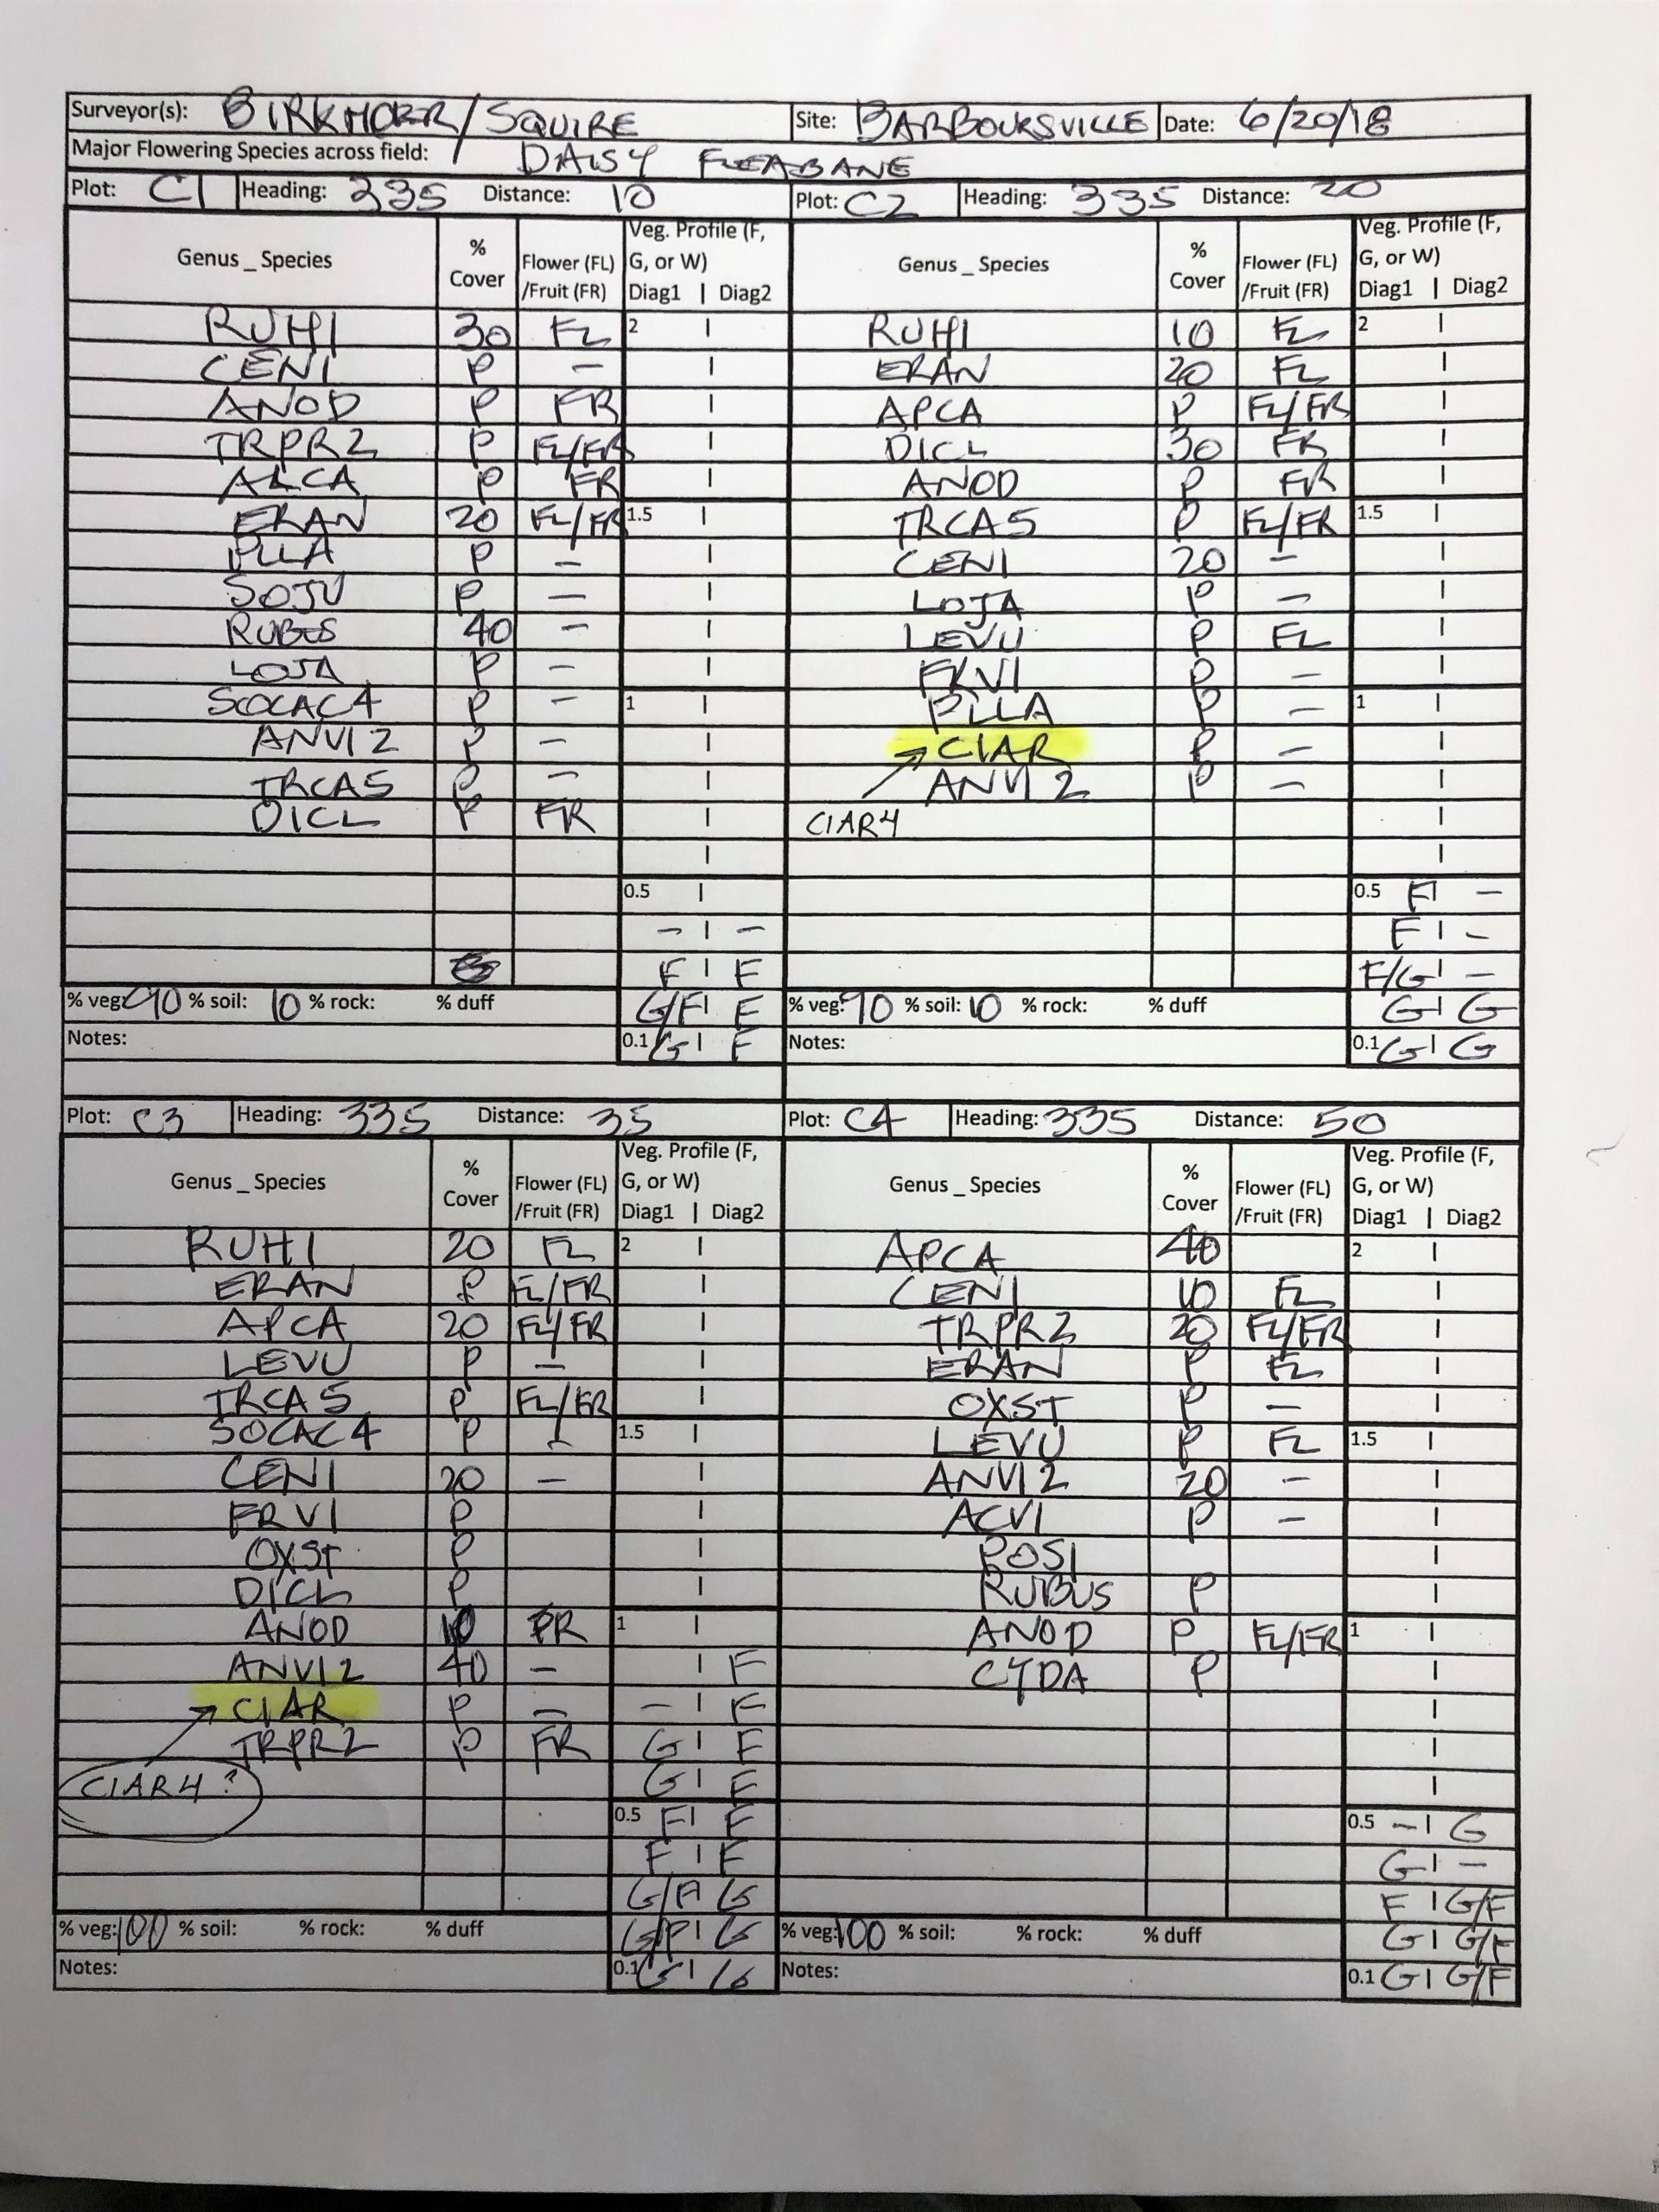 Surveyor(s): BIRKMOER/SQUIRE Site: BARBOURSVILLE Date: 6/20/18
Major Flowering Species across field: DAISY FLEABANE
Plot: C1 Heading: 335 Distance: 10
Genus _ Species % Cover Flower (FL) /Fruit (FR) Veg. Profile (F, G, or W) Diag1 | Diag2
RUHI 30 FL 2 |
CENI P – |
ANOD P FR |
TRPR2 P FL/FR |
ALCA P FR |
ERAN 20 FL/FR 1.5 |
PLLA P – |
SOJU P – |
RUBUS 40 – |
LOJA P – |
SOCAC4 P – 1 |
ANVI2 P – |
TRCA5 P – |
DICL P FR |
|
0.5 |
– | –
F | F
% veg: 90 % soil: 10 % rock: % duff G/F | F
Notes: 0.1 G | F
Plot: C2 Heading: 335 Distance: 20
Genus _ Species % Cover Flower (FL) /Fruit (FR) Veg. Profile (F, G, or W) Diag1 | Diag2
RUHI 10 FL 2 |
ERAN 20 FL |
APCA P FL/FR |
DICL 30 FR |
ANOD P FR |
TRCA5 P FL/FR 1.5 |
CENI 20 – |
LOJA P – |
LEVU P FL |
FRVI P – |
PLLA P – 1 |
CIAR P – |
ANVI2 P – |
CIAR4 |
|
0.5 F | –
F | –
F/G | –
% veg: 90 % soil: 10 % rock: % duff G | G
Notes: 0.1 G | G
Plot: C3 Heading: 335 Distance: 35
Genus _ Species % Cover Flower (FL) /Fruit (FR) Veg. Profile (F, G, or W) Diag1 | Diag2
RUHI 20 FL 2 |
ERAN P FL/FR |
APCA 20 FL/FR |
LEVU P – |
TRCA5 P FL/FR |
SOCAC4 P – 1.5 |
CENI 20 – |
FRVI P |
OXST P |
DICL P |
ANOD 10 FR 1 |
ANVI2 40 – | F
CIAR P – – | F
TRPR2 P FR G | F
CIAR4? G | F
0.5 F | F
F | F
G/F | G
% veg: 100 % soil: % rock: % duff G/F | G
Notes: 0.1 G | G
Plot: C4 Heading: 335 Distance: 50
Genus _ Species % Cover Flower (FL) /Fruit (FR) Veg. Profile (F, G, or W) Diag1 | Diag2
APCA 40 2 |
CENI 10 FL |
TRPR2 20 FL/FR |
ERAN P FL |
OXST P – |
LEVU P FL 1.5 |
ANVI2 20 – |
ACVI P – |
POSI |
RUBUS P |
ANOD P FL/FR 1 |
CYDA P |
|
|
|
0.5 – | G
G | –
F | G/F
% veg: 100 % soil: % rock: % duff G | G/F
Notes: 0.1 G | G/F